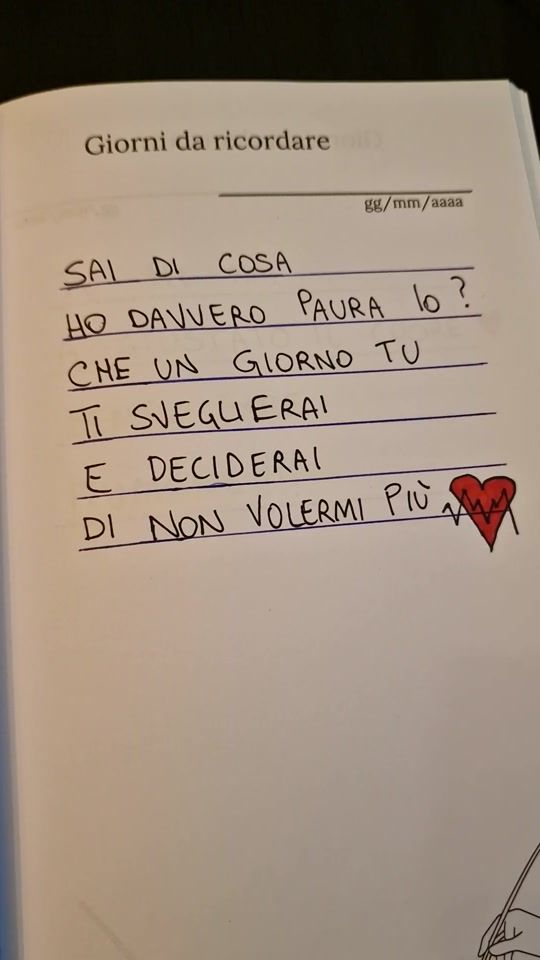 Giorni da ricordare
gg/mm/aaaa
SAI DI COSA
HO DAVVERO PAURA IO?
CHE UN GIORNO TU
TI SVEGLIERAI
E DECIDERAI
DI NON VOLERMI PIÙ